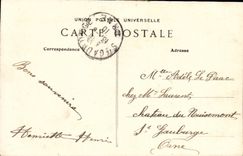 UNION POSTALE UNIVERSELLE
CARTE POSTALE
Correspondance
Adresse
Bons souvenirs
Henriette Henri
Mlle
chez Mr Laurent
Chateau du
Ste Gauburge
Orne